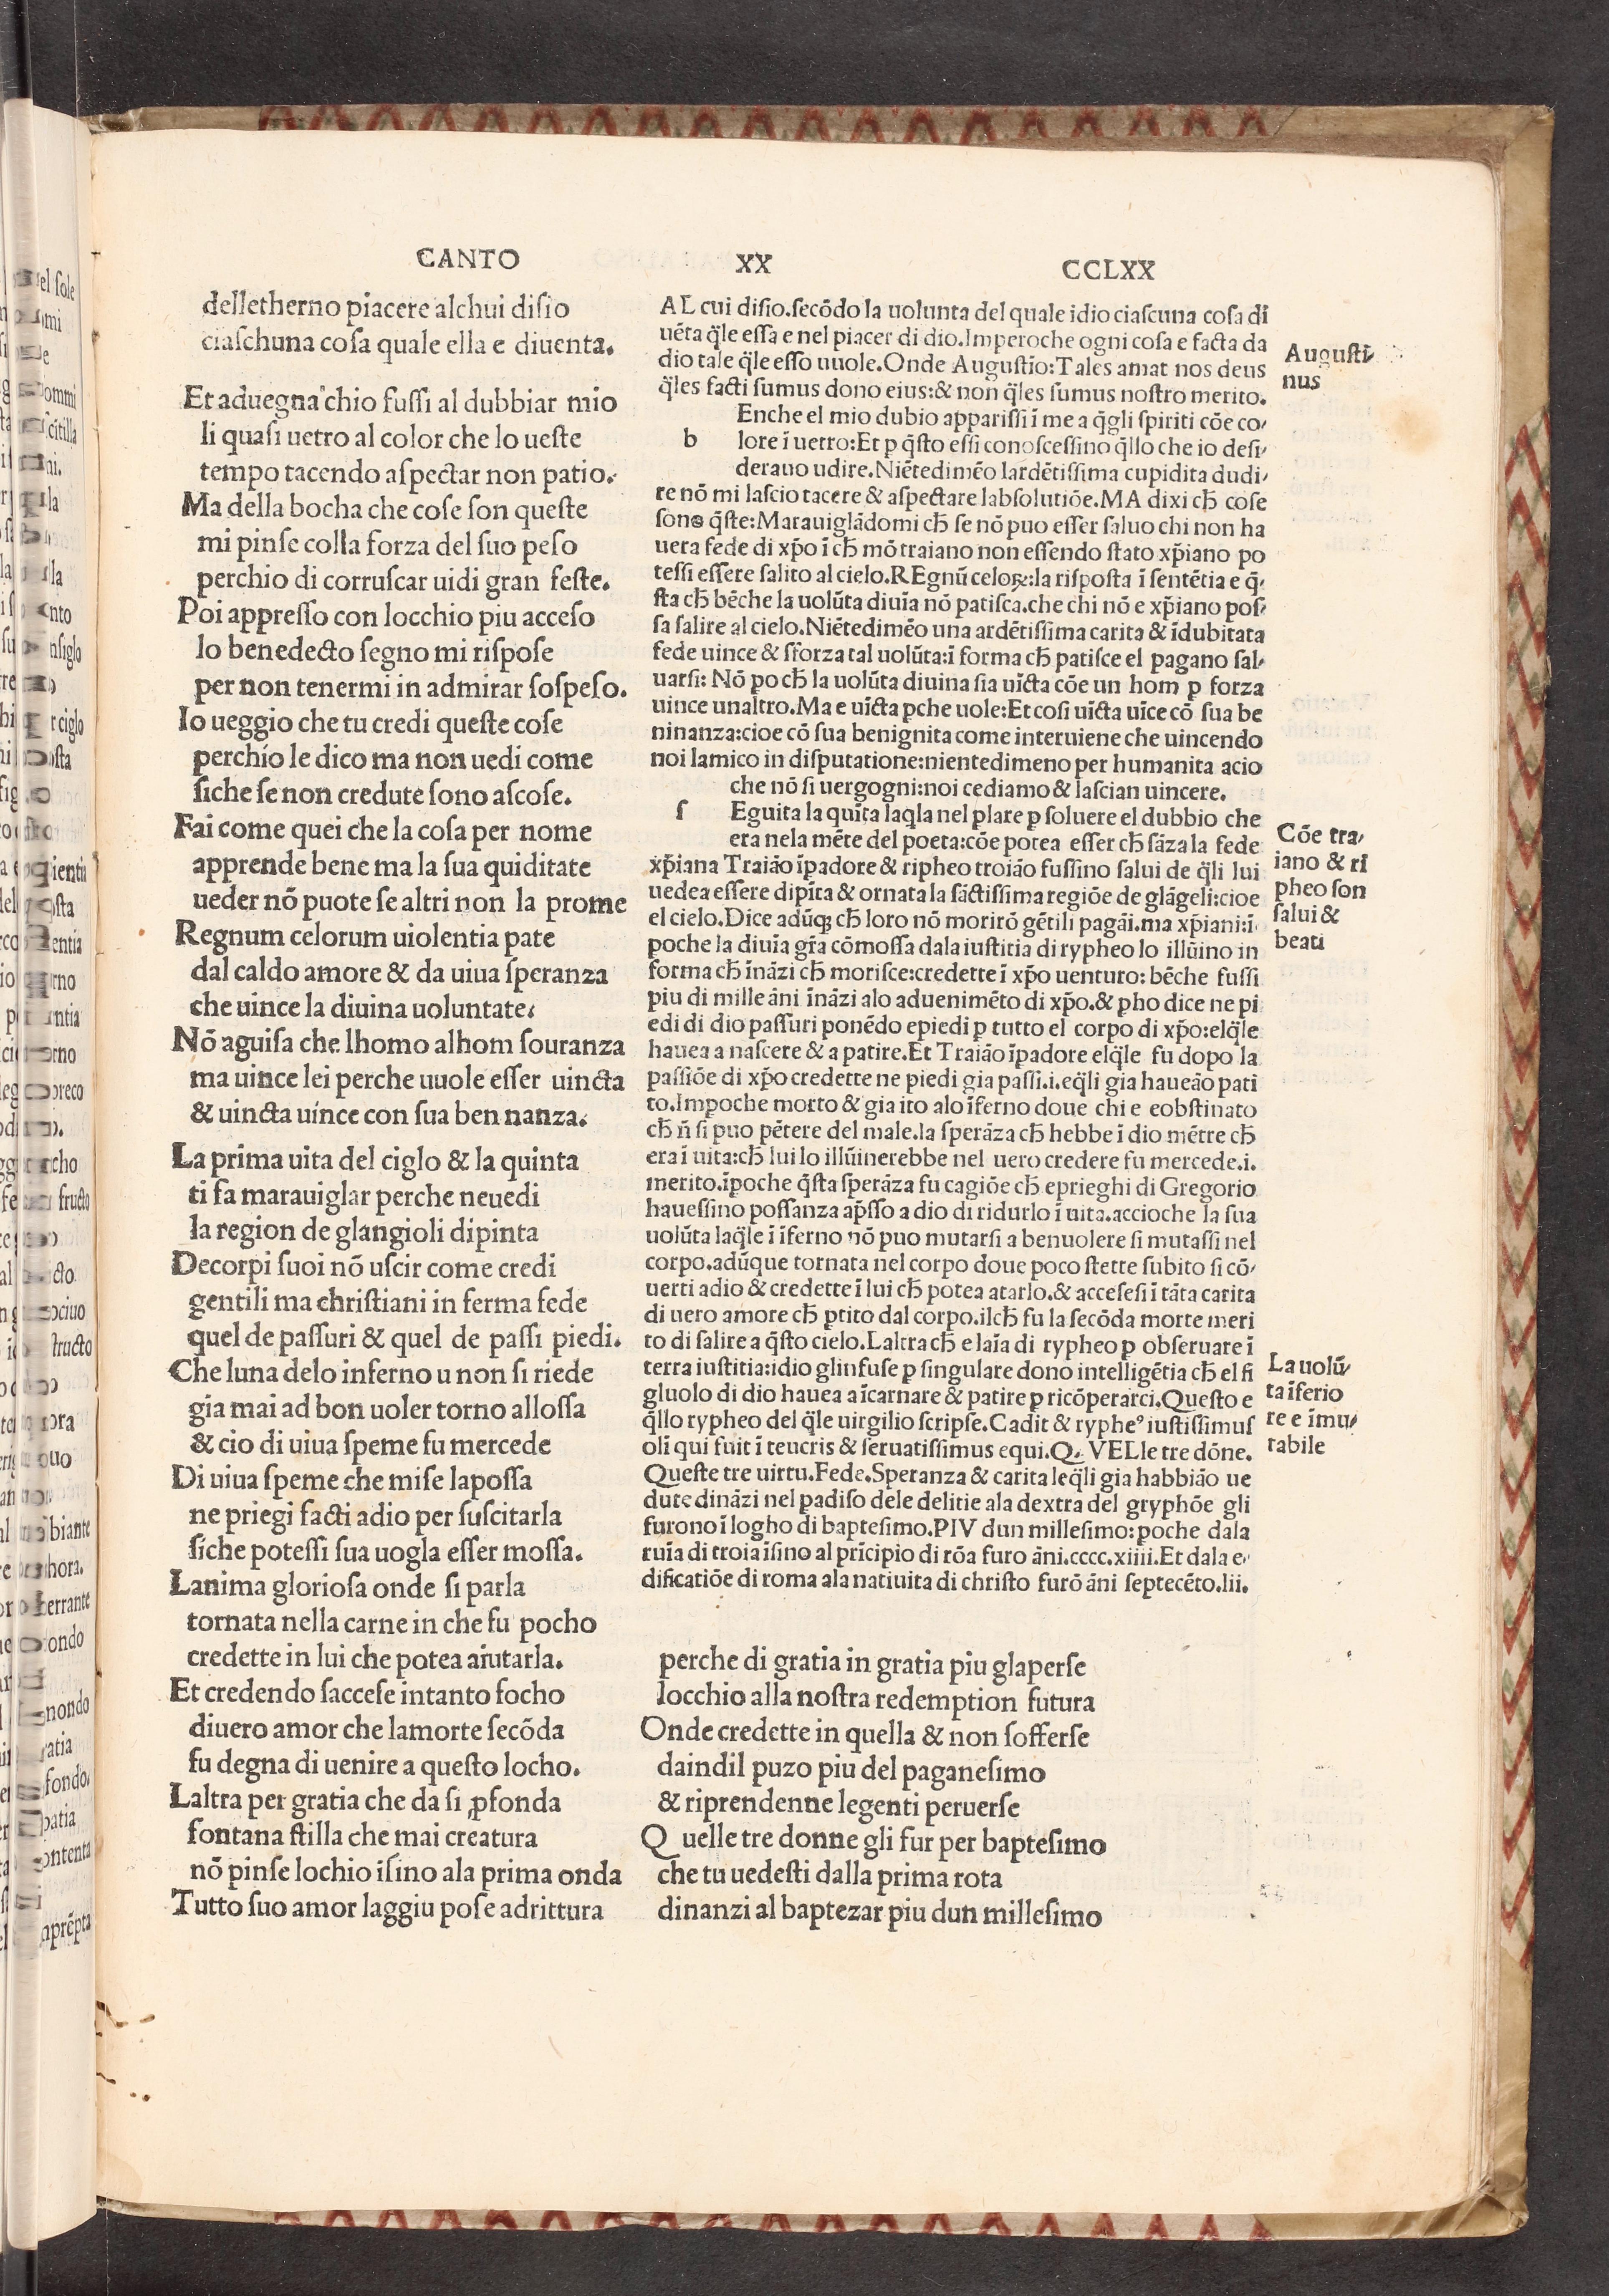 CANTO XX CCLXX
delletherno piacere alchui diſio
ciaſchuna coſa quale ella e diuenta.
Et aduegna chio fuſſi al dubbiar mio
li quaſi uetro al color che lo ueſte
tempo tacendo aſpectar non patio.
Ma della bocha che coſe ſon queſte
mi pinſe colla forza del ſuo peſo
perchio di corruſcar uidi gran feſte.
Poi appreſſo con locchio piu acceſo
lo benedecto ſegno mi riſpoſe
per non tenermi in admirar ſoſpeſo.
Io ueggio che tu credi queſte coſe
perchio le dico ma non uedi come
ſiche ſe non credute ſono aſcoſe.
Fai come quei che la coſa per nome
apprende bene ma la ſua quiditate
ueder nō puote ſe altri non la prome
Regnum celorum uiolentia pate
dal caldo amore & da uiua ſperanza
che uince la diuina uoluntate.
Nō aguiſa che lhomo alhom ſouranza
ma uince lei perche uuole eſſer uincta
& uincta uince con ſua ben nanza.
La prima uita del ciglo & la quinta
ti fa marauiglar perche neuedi
la region de glangioli dipinta
Decorpi ſuoi nō uſcir come credi
gentili ma chriſtiani in ferma fede
quel de paſſuri & quel de paſſi piedi.
Che luna delo inferno u non ſi riede
gia mai ad bon uoler torno alloſſa
& cio di uiua ſpeme fu mercede
Di uiua ſpeme che miſe lapoſſa
ne priegi facti adio per ſuſcitarla
ſiche poteſſi ſua uogla eſſer moſſa.
Lanima glorioſa onde ſi parla
tornata nella carne in che fu pocho
credette in lui che potea aiutarla.
Et credendo ſacceſe intanto focho
diuero amor che lamorte ſecōda
fu degna di uenire a queſto locho.
Laltra per gratia che da ſi ꝓfonda
fontana ſtilla che mai creatura
nō pinſe lochio īſino ala prima onda
Tutto ſuo amor laggiu poſe adrittura
AL cui diſio.ſecōdo la uolunta del quale idio ciaſcuna coſa di
uēta q̄le eſſa e nel piacer di dio.Imperoche ogni coſa e facta da
dio tale q̄le eſſo uuole.Onde Auguſtīo:Tales amat nos deus
q̄les facti ſumus dono eius:& non q̄les ſumus noſtro merito.
Enche el mio dubio appariſſi ī me a q̄gli ſpiriti cōe co/
b lore ī uetro:Et p̱ q̄ſto eſſi conoſceſſino q̄llo che io deſi/
derauo udire.Niētedimēo lardētiſſima cupidita dudi/
re nō mi laſcio tacere & aſpectare labſolutiōe.MA dixi ch̄ coſe
ſono q̄ſte:Marauiglādomi ch̄ ſe nō puo eſſer ſaluo chi non ha
uera fede di xp̄o ī ch̄ mō traiano non eſſendo ſtato xp̄iano po
teſſi eſſere ſalito al cielo.REgnū celoꝝ:la riſpoſta ī ſentētia e q̄/
ſta ch̄ bēche la uolūta diuīa nō patiſca.che chi nō e xp̄iano poſ/
ſa ſalire al cielo.Niētedimēo una ardētiſſima carita & īdubitata
fede uince & ſforza tal uolūta:ī forma ch̄ patiſce el pagano ſal/
uarſi: Nō po ch̄ la uolūta diuina ſia uīcta cōe un hom ꝑ forza
uince unaltro.Ma e uīcta ꝑche uole:Et coſi uīcta uīce cō ſua be
ninanza:cioe cō ſua benignita come interuiene che uincendo
noi lamico in diſputatione:nientedimeno per humanita acio
che nō ſi uergogni:noi cediamo & laſcian uincere.
ſ Eguita la quīta laq̄la nel plare ꝑ ſoluere el dubbio che
era nela mēte del poeta:cōe potea eſſer ch̄ ſāza la fede
xp̄iana Traiāo īpadore & ripheo troiāo fuſſino ſalui de q̄li lui
uedea eſſere dipīta & ornata la ſāctiſſima regiōe de glāgeli:cioe
el cielo.Dice adūqꝫ ch̄ loro nō morirō gētili pagāi.ma xp̄iani:ī
poche la diuīa gr̄a cōmoſſa dala iuſtitia di rypheo lo illūino in
forma ch̄ īnāzi ch̄ moriſce:credette ī xp̄o uenturo: bēche fuſſi
piu di mille āni īnāzi alo aduenimēto di xp̄o.& ꝑho dice ne pi
edi di dio paſſuri ponēdo epiedi ꝑ tutto el corpo di xp̄o:elq̄le
hauea a naſcere & a patire.Et Traiāo īpadore elq̄le fu dopo la
paſſiōe di xp̄o credette ne piedi gia paſſi.i.eq̄li gia haueāo pati
to.Impoche morto & gia ito alo īferno doue chi e eobſtinato
ch̄ n̄ ſi puo pētere del male.la ſperāza ch̄ hebbe ī dio mētre ch̄
era ī uita:ch̄ lui lo illūinerebbe nel uero credere fu mercede.i.
merito.īpoche q̄ſta ſperāza fu cagiōe ch̄ eprieghi di Gregorio
haueſſino poſſanza ap̄ſſo a dio di ridurlo ī uita.accioche la ſua
uolūta laq̄le ī īferno nō puo mutarſi a benuolere ſi mutaſſi nel
corpo.adūque tornata nel corpo doue poco ſtette ſubito ſi cō/
uerti adio & credette ī lui ch̄ potea atarlo.& acceſeſi ī tāta carita
di uero amore ch̄ ꝑtito dal corpo.ilch̄ fu la ſecōda morte meri
to di ſalire a q̄ſto cielo.Laltra ch̄ e laīa di rypheo ꝑ obſeruare ī
terra iuſtitia:idio glinfuſe ꝑ ſingulare dono intelligētia ch̄ el fi
gluolo di dio hauea a īcarnare & patire ꝑ ricōperarci.Queſto e
q̄llo rypheo del q̄le uirgilio ſcripſe.Cadit & ryphe⁹ iuſtiſſimuſ
olī qui fuit ī teucris & ſeruatiſſimus equi.Q. VELle tre dōne.
Queſte tre uirtu.Fede.Speranza & carita leq̄li gia habbiāo ue
dute dināzi nel padiſo dele delitie ala dextra del gryphōe gli
furono ī logho di bapteſimo.PIV dun milleſimo:poche dala
ruīa di troia īſino al prīcipio di rōa furo āni.cccc.xiiii.Et dala e/
dificatiōe di roma ala natiuita di chriſto furō āni ſeptecēto.lii.
perche di gratia in gratia piu glaperſe
locchio alla noſtra redemption futura
Onde credette in quella & non ſofferſe
daindil puzo piu del paganeſimo
& riprendenne le genti peruerſe
Q uelle tre donne gli fur per bapteſimo
che tu uedeſti dalla prima rota
dinanzi al baptezar piu dun milleſimo
Auguſti/
nus
Cōe tra/
iano & ri
pheo ſon
ſalui &
beati
La uolū/
ta īferio
re e īmu/
tabile